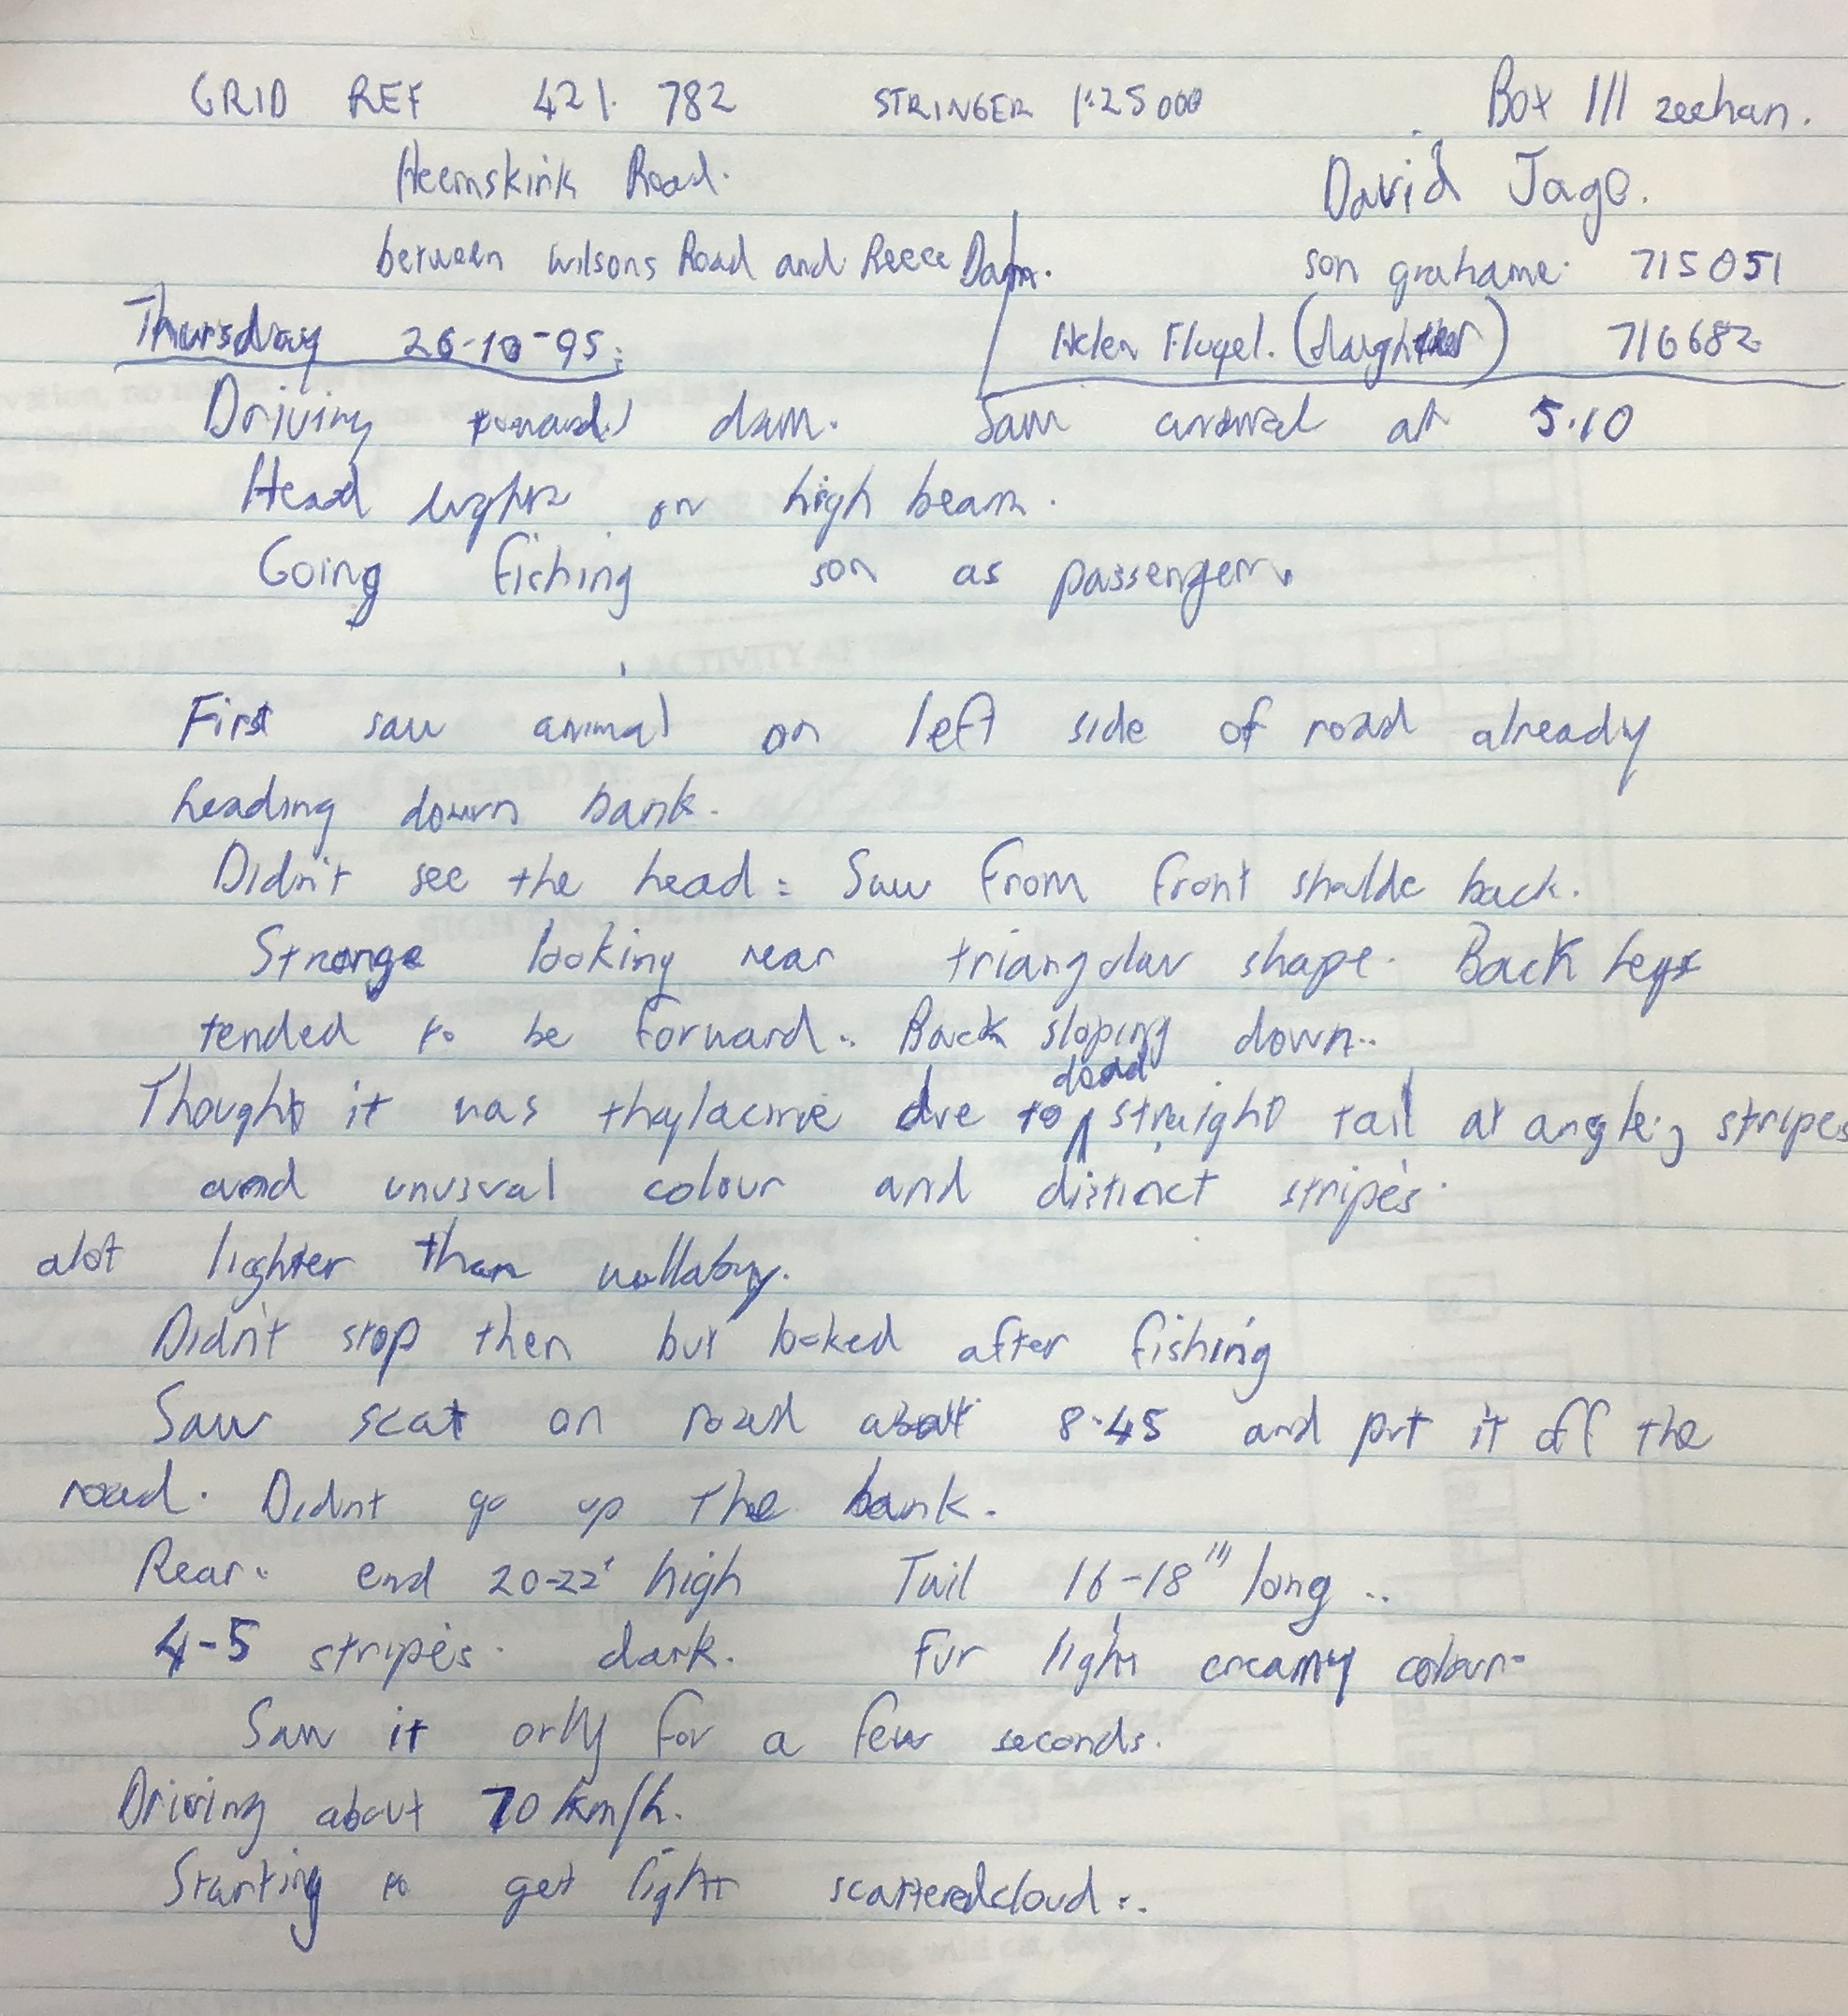 GRID REF 421. 782 STRINGER 1:25000 Box 111 zeehan.
Heemskirk Road. David Jago.
between Wilsons Road and Reece Dam. son grahame. 715051
Thursday 26-10-95: Helen Flugel. (daughter) 716682
Driving towards dam. Saw animal at 5.10
Head lights on high beam.
Going fishing son as passenger.
First saw animal on left side of road already
heading down bank.
Didn't see the head: Saw from front shoulde back.
Strange looking rear triangular shape. Back legs
tended to be forward.. Back sloping down..
dead
Thought it was thylacine due to ∧ straight tail at angle; stripes
and unusual colour and distinct stripes.
alot lighter than wallaby.
Didn't stop then but looked after fishing
Saw scat on road about 8.45 and put it off the
road. Didnt go up the bank.
Rear. end 20-22' high Tail 16-18" long..
4-5 stripes. dark. Fur light creamy colour-
Saw it only for a few seconds.
Driving about 70 km/h.
Starting to get light scattered cloud..